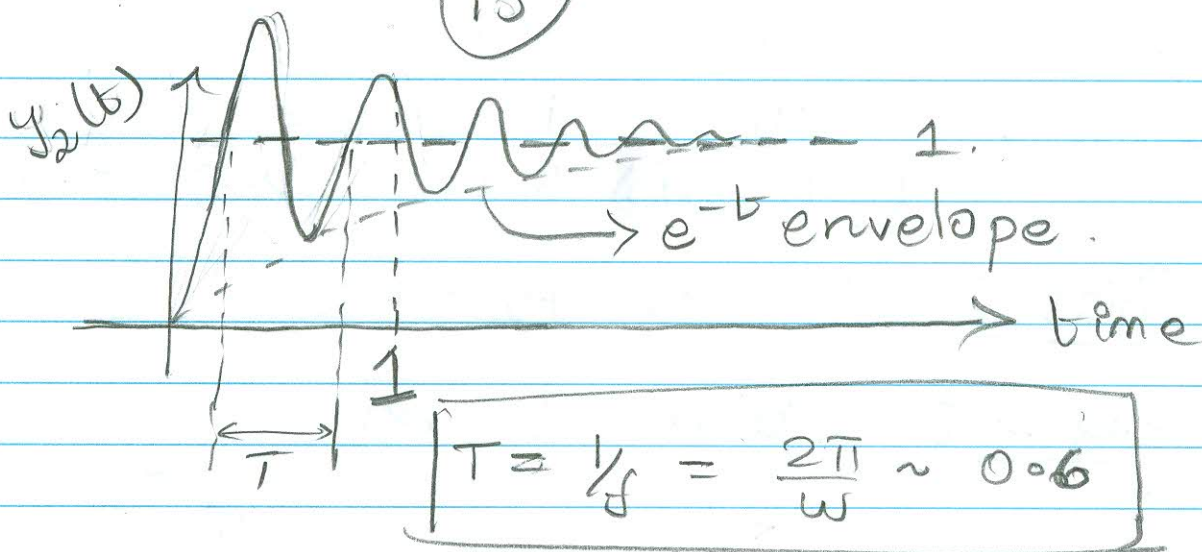 15
y₂(t)
1.
e⁻ᵗ envelope.
time
1
T
T = 1/f = 2π/ω ~ 0.6